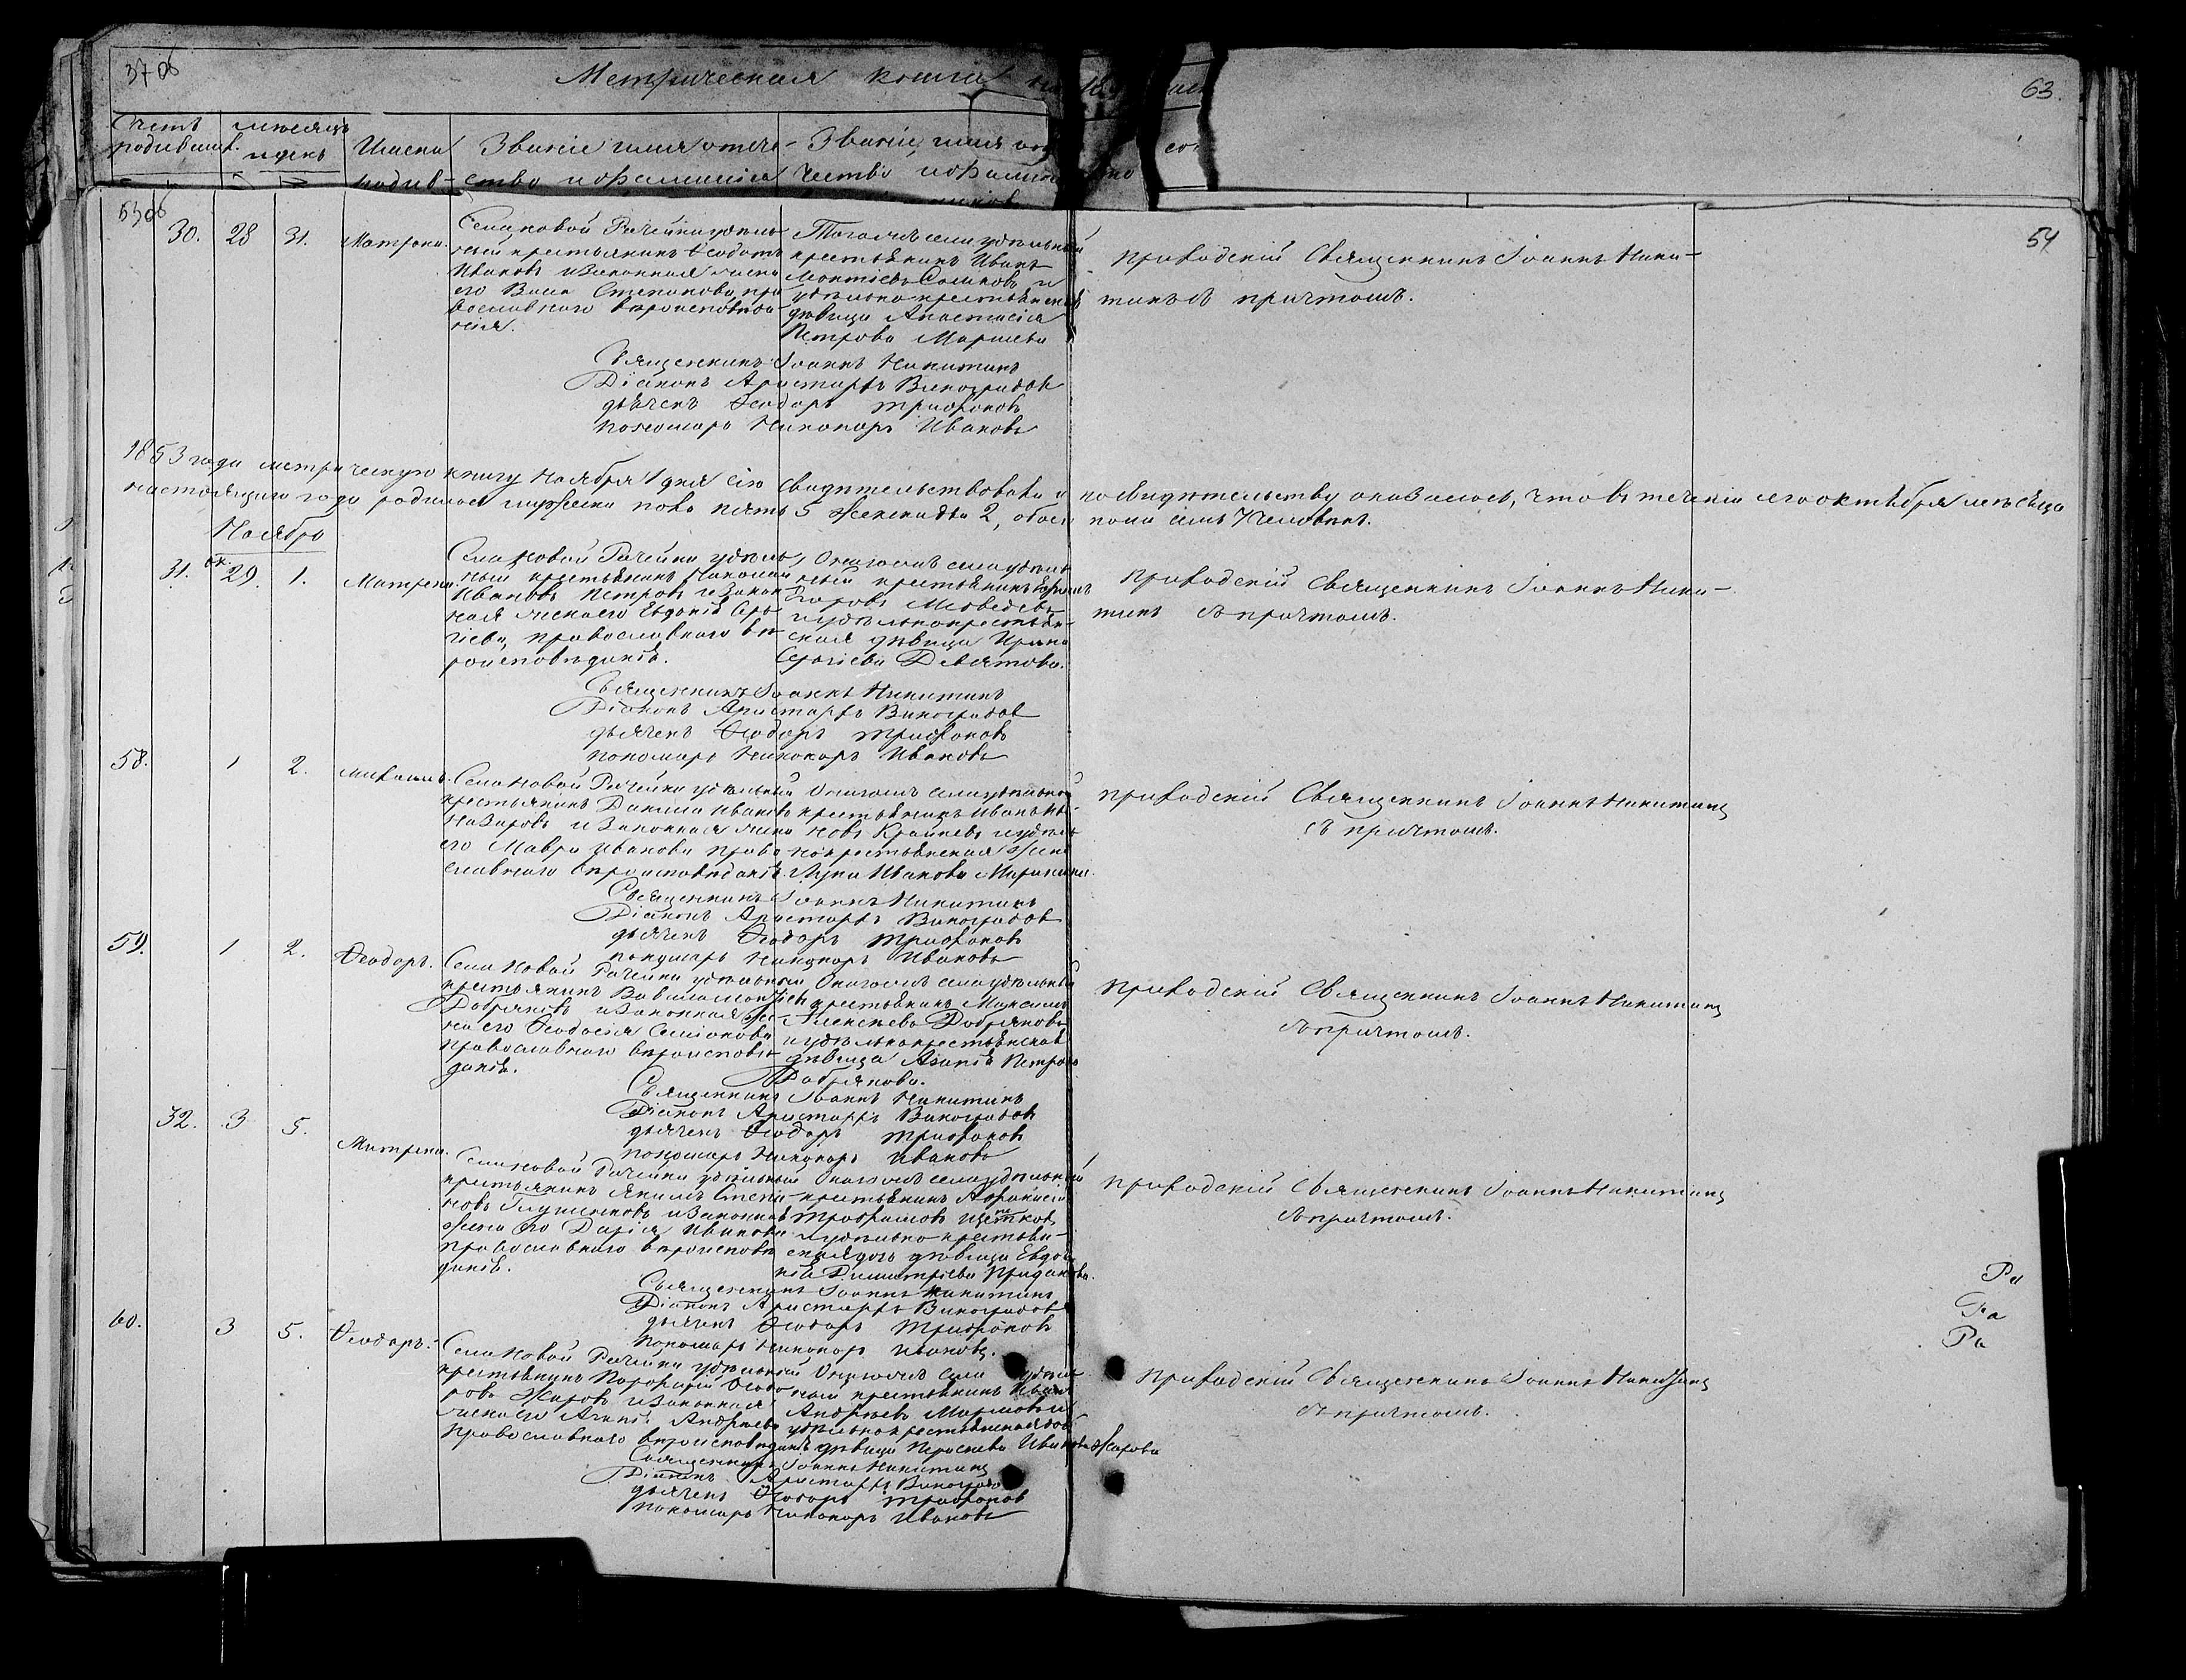 37об
Метрическая книга на 18
63.
Счетъ родивших.
мѣсяцъ и день
Имена родив-
Званіе имя отче-
ство и фамилія
Званіе, имя
чество и фамилія
53об
54
30. 28 31. Матрона.
Села Новой Рачейки удѣль-
ный крестьянинъ Ѳеодотъ
Ивановъ и законная жена
его Васса Степанова, пра
вославнаго вѣроисповѣда-
нія.
Тогожъ села удѣльный
крестьянинъ Иванъ
и
удѣльнокрестьянская
дѣвица Анастасія
Петрова
приходскій Священникъ Іоаннъ Ники-
тинъ съ причтомъ.
Священникъ Іоаннъ Никитинъ
Діаконъ Аристархъ Виноградовъ
дьячекъ Ѳеодоръ Трифоновъ
пономарь Никаноръ Ивановъ
1853 года метрическую книгу Ноября 1 дня сію свидѣтельствовали и по свидѣтельству оказалось, что въ теченіи сего октября мѣсяца
настоящаго года родилось мужеска пола пять 5 женска два 2, обоего пола семь 7 человѣкъ.
Ноября
31. ок 29. 1. Матрона.
Села Новой Рачейки удѣль-
ный крестьянинъ Николай
Ивановъ Петровъ и закон
ная жена его Евдокія Сер-
гіева, православнаго вѣ-
роисповѣданія.
Онагожъ села удѣль
ный крестьянинъ Ефимъ
Егоровъ Медведевъ
и удѣльнокрестьян-
ская дѣвица Ирина
Сергіева Девятова.
приходскій Священникъ Іоаннъ Ники-
тинъ съ причтомъ.
Священникъ Іоаннъ Никитинъ
Діаконъ Аристархъ Виноградовъ
дьячекъ Ѳеодоръ Трифоновъ
пономарь Никаноръ Ивановъ
58. 1 2. Михаилъ.
Села Новой Рачейки удѣльный
крестьянинъ Данила Ивановъ
Назаровъ и законная жена
его Мавра Иванова право
славнаго вѣроисповѣданія
Онагожъ села удѣльный
крестьянинъ Иванъ Ива-
новъ Крайневъ и удѣль
нокрестьянская жена
Иванова
приходскій Священникъ Іоаннъ Никитинъ
съ причтомъ.
Священникъ Іоаннъ Никитинъ
Діаконъ Аристархъ Виноградовъ
дьячекъ Ѳеодоръ Трифоновъ
пономарь Никаноръ Ивановъ
59. 1 2. Ѳеодоръ.
Села Новой Рачейки удѣльный
крестьянинъ
Добряковъ и законная же-
на его Ѳеодосія Семіонова
православнаго вѣроисповѣ-
данія.
Онагожъ села удѣльный
крестьянинъ Максимъ
Алексѣевъ Добряковъ
и удѣльнокрестьянская
дѣвица Агапія Петрова
Добрякова.
приходскій Священникъ Іоаннъ Никитинъ
съ причтомъ.
Священникъ Іоаннъ Никитинъ
Діаконъ Аристархъ Виноградовъ
дьячекъ Ѳеодоръ Трифоновъ
пономарь Никаноръ Ивановъ
32. 3 5. Матрона.
Села Новой Рачейки удѣльный
крестьянинъ Якимъ Степа-
новъ и законная
жена его Дарія Иванова
православнаго вѣроисповѣ
данія.
Онагожъ села удѣльный
крестьянинъ Афанасій
Трофимовъ
и удѣльно-крестьян-
ская дочь дѣвица Евдо-
кія Димитріева
приходскій Священникъ Іоаннъ Никитинъ
съ причтомъ.
Священникъ Іоаннъ Никитинъ
Діаконъ Аристархъ Виноградовъ
дьячекъ Ѳеодоръ Трифоновъ
пономарь Никаноръ Ивановъ.
Ра
Ра
Ра
60. 3 5. Ѳеодоръ.
Села Новой Рачейки удѣльный
крестьянинъ Порфирій Ѳеодо
ровъ Жаровъ и законная
жена его Агапія Андреева
православнаго вѣроисповѣданія
Онагожъ села удѣль
ный крестьянинъ Иванъ
Андреевъ
удѣльнокрестьянская
дѣвица Параскева Иванова Жарова
приходскій Священникъ Іоаннъ Никитинъ
съ причтомъ.
Священникъ Іоаннъ Никитинъ
Діаконъ Аристархъ Виноградовъ
дьячекъ Ѳеодоръ Трифоновъ
пономарь Никаноръ Ивановъ